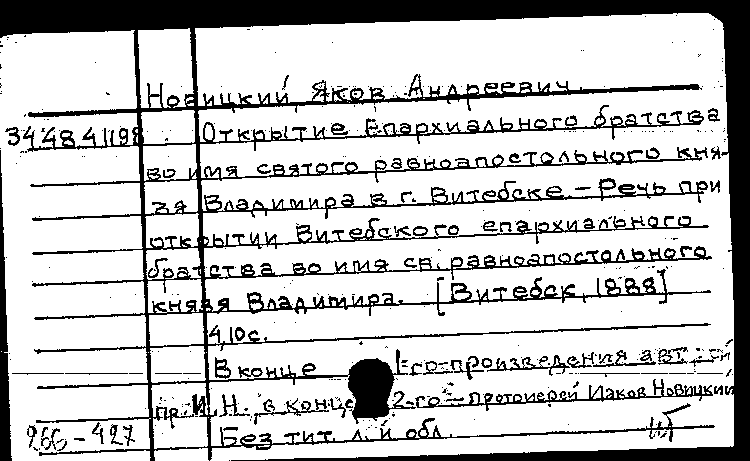 Новицкий, Яков Андреевич.
34484/198 . Открытие Епархиального братства
во имя святого равноапостольного кня-
зя Владимира в г. Витебске. – Речь при
открытии Витебского епархиального
братства во имя св. равноапостольного
князя Владимира. [Витебск, 1888]
4,10 с.
В конце 1-го произведения автор
пр. И. Н., в конце 2-го – протоиерей Иаков Новицкий
266-427 Без тит. л. и обл.